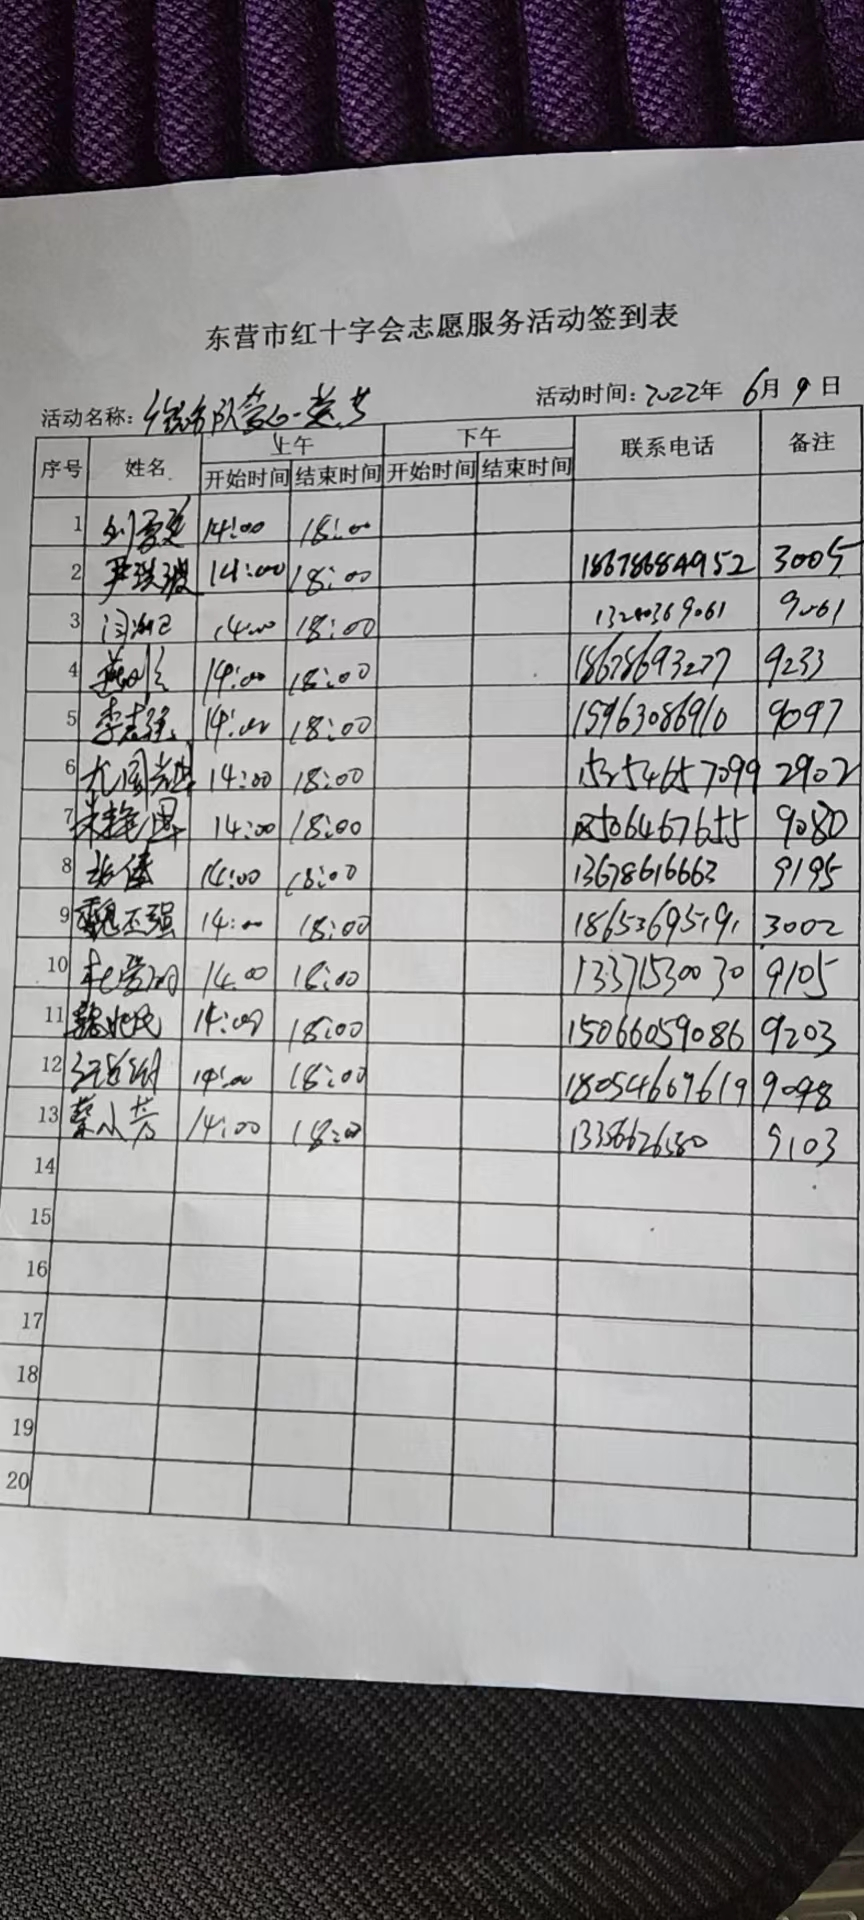 东营市红十字会志愿服务活动签到表
活动名称: 活动时间: 2022年 6月 9日
序号 姓名 上午 下午 联系电话 备注
开始时间 结束时间 开始时间 结束时间
1 14:00 18:00
2 14:00 18:00 18678684952 3005
3 14:00 18:00 13280369061 9061
4 14:00 18:00 18678693277 9233
5 李志强 14:00 18:00 15963086910 9097
6 14:00 18:00 15254657099 2902
7 14:00 18:00 1506467655 9080
8 14:00 18:00 13678616663 9195
9 魏玉强 14:00 18:00 18653695191 3002
10 14:00 18:00 13371530030 9105
11 14:00 18:00 15066059086 9203
12 14:00 18:00 18054609619 9098
13 蔡小芳 14:00 18:00 13356626580 9103
14
15
16
17
18
19
20